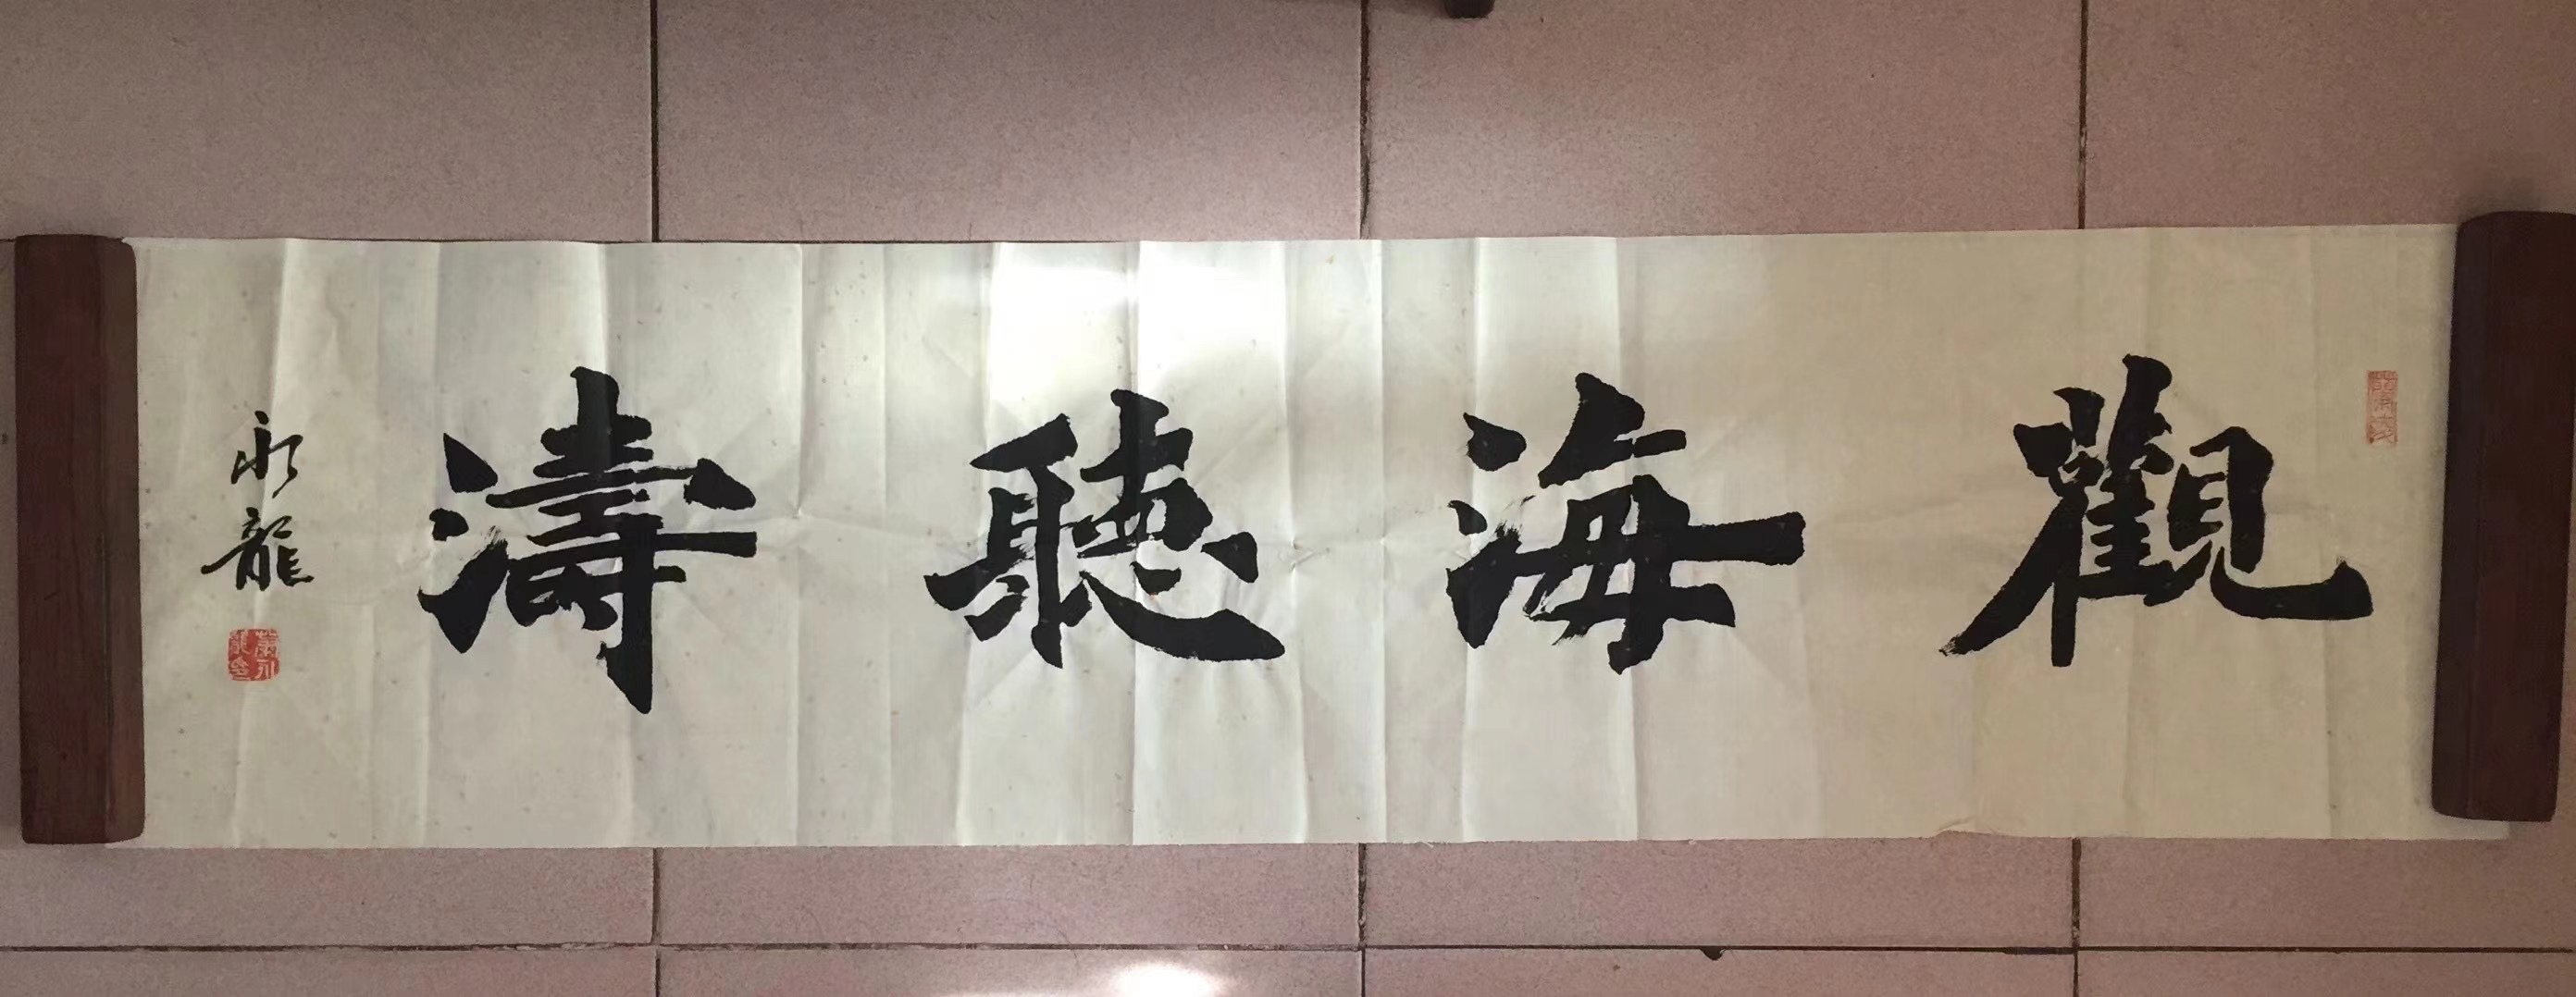 觀海聽濤
永龍